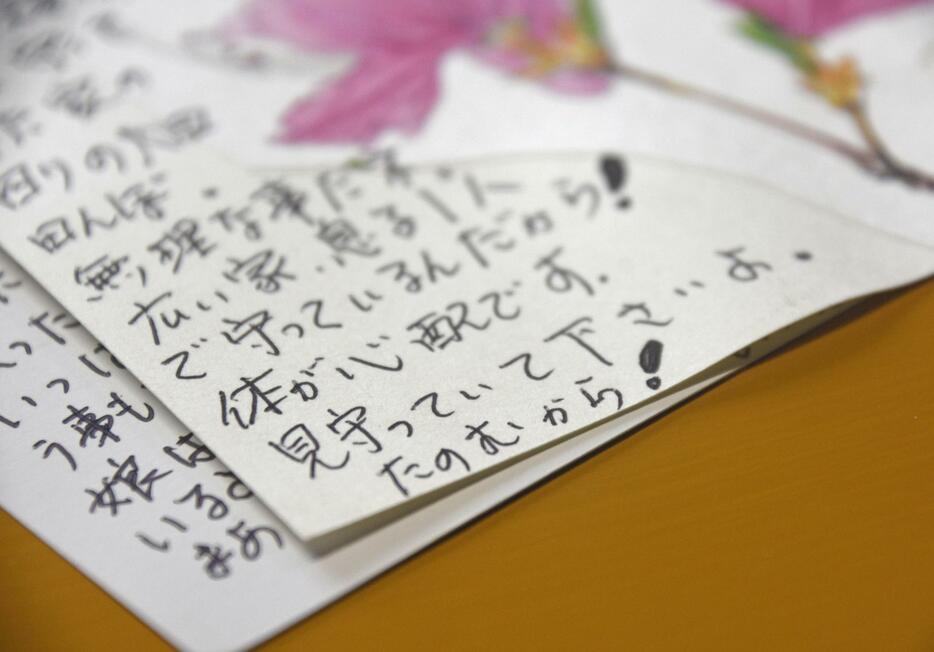 回りの
田んぼ。
無理な事だネ。
広い家、息子1人
で守っているんだから!
体が心配です。
見守っていて下さいよ。
たのむから!
った
いっぱ
う事も
娘は
いるよ
まめ